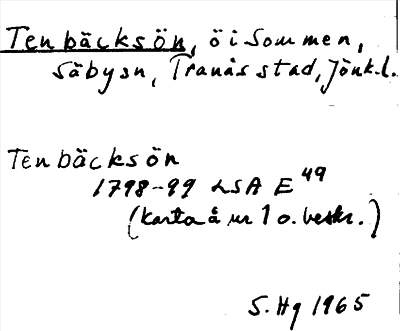 Tenbäcksön, ö i Sommen,
Säbysn, Tranås stad, Jönk.l.
Tenbäcksön
1798-99 LSA E 49
(karta å nr 1 o. beskr.)
S. Hg 1965